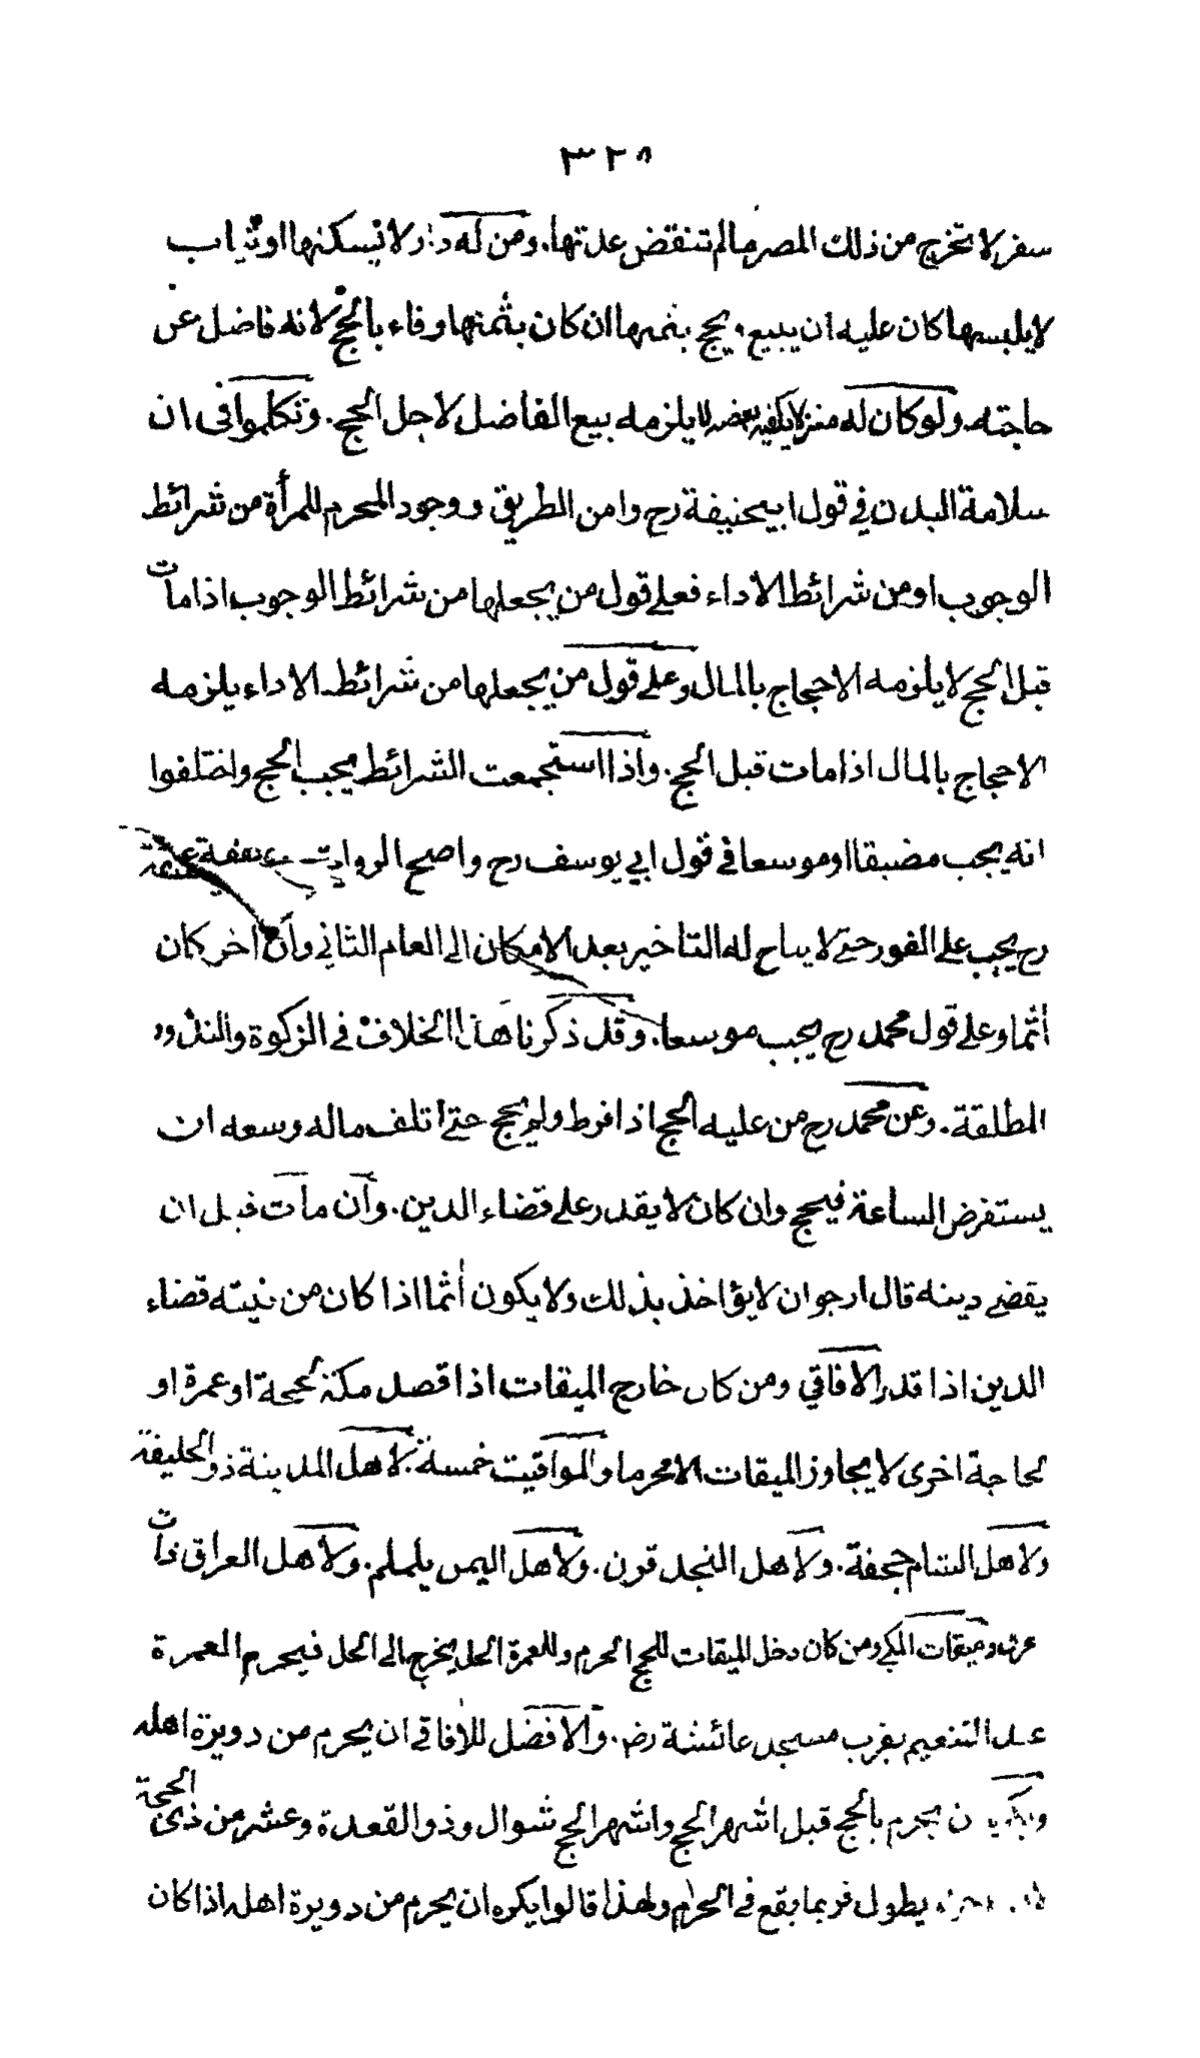 ٣٢٨
سفر لا تخرج من ذلك المصر مالم تنقض عدتها. ومن له دار لا يسكنها او ثياب
لا يلبسها كان عليه ان يبيع ويحج بثمنها ان كان بثمنها وفاء بالحج لانه فاضل عن
حاجته. ولو كان له منزل يكفيه بعضه لا يلزمه بيع الفاضل لاجل الحج. وتكلموا فى ان
سلامة البدن في قول ابيحنيفة رح وامن الطريق ووجود المحرم للمرأة من شرائط
الوجوب او من شرائط الاداء فعلى قول من يجعلها من شرائط الوجوب اذا مات
قبل الحج لا يلزمه الاحجاج بالمال وعلى قول من يجعلها من شرائط الاداء يلزمه
الاحجاج بالمال اذا مات قبل الحج. واذا استجمعت الشرائط يجب الحج واختلفوا
انه يجب مضيقا او موسعا في قول ابي يوسف رح واصح الروايات
رح يجب على الفور حتى لا يباح له التاخير بعد الامكان الى العام الثاني وان اخر كان
اثما وعلى قول محمد رح يجب موسعا. وقد ذكرنا هذا الخلاف في الزكوة والنذور
المطلقة. وعن محمد رح من عليه الحج اذا فرط ولم يحج حتى اتلف ماله وسعه ان
يستقرض الساعة فيحج وان كان لا يقدر على قضاء الدين. وان مات قبل ان
يقضى دينه قال ارجو ان لا يؤاخذ بذلك ولا يكون اثما اذا كان من نيته قضاء
الدين اذا قدر الافاقي ومن كان خارج الميقات اذا قصد مكة لحجة او عمرة او
لحاجة اخرى لا يجاوز الميقات الا محرما والمواقيت خمسة. لاهل المدينة ذو الحليفة
ولاهل الشام جحفة. ولاهل النجد قرن. ولاهل اليمن يلملم. ولاهل العراق ذات
عرق وميقات المكي ومن كان دخل الميقات للحج الحرم وللعمرة الحل يخرج الى الحل فيحرم العمرة
عند التنعيم بقرب مسجد عائشة رض. والافضل للافاقي ان يحرم من دويرة اهله
ن يحرم بالحج قبل اشهر الحج واشهر الحج شوال وذو القعدة وعشر من ذى الحجة
يطول فربما يقع فى الحرام ولهذا قالوا يكره ان يحرم من دويرة اهله اذا كان